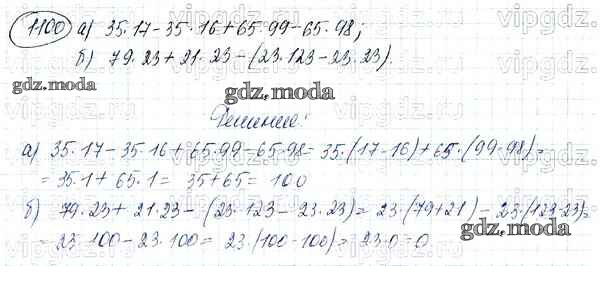 1100 а) 35·17-35·16+65·99-65·98;
б) 79·23+21·23-(23·123-23·23).
gdz.moda
gdz.moda
Решение:
а) 35·17-35·16+65·99-65·98=35·(17-16)+65·(99-98)=
=35·1+65·1=35+65=100
б) 79·23+21·23-(23·123-23·23)=23·(79+21)-23·(123-23)=
=23·100-23·100=23·(100-100)=23·0=0
gdz.moda